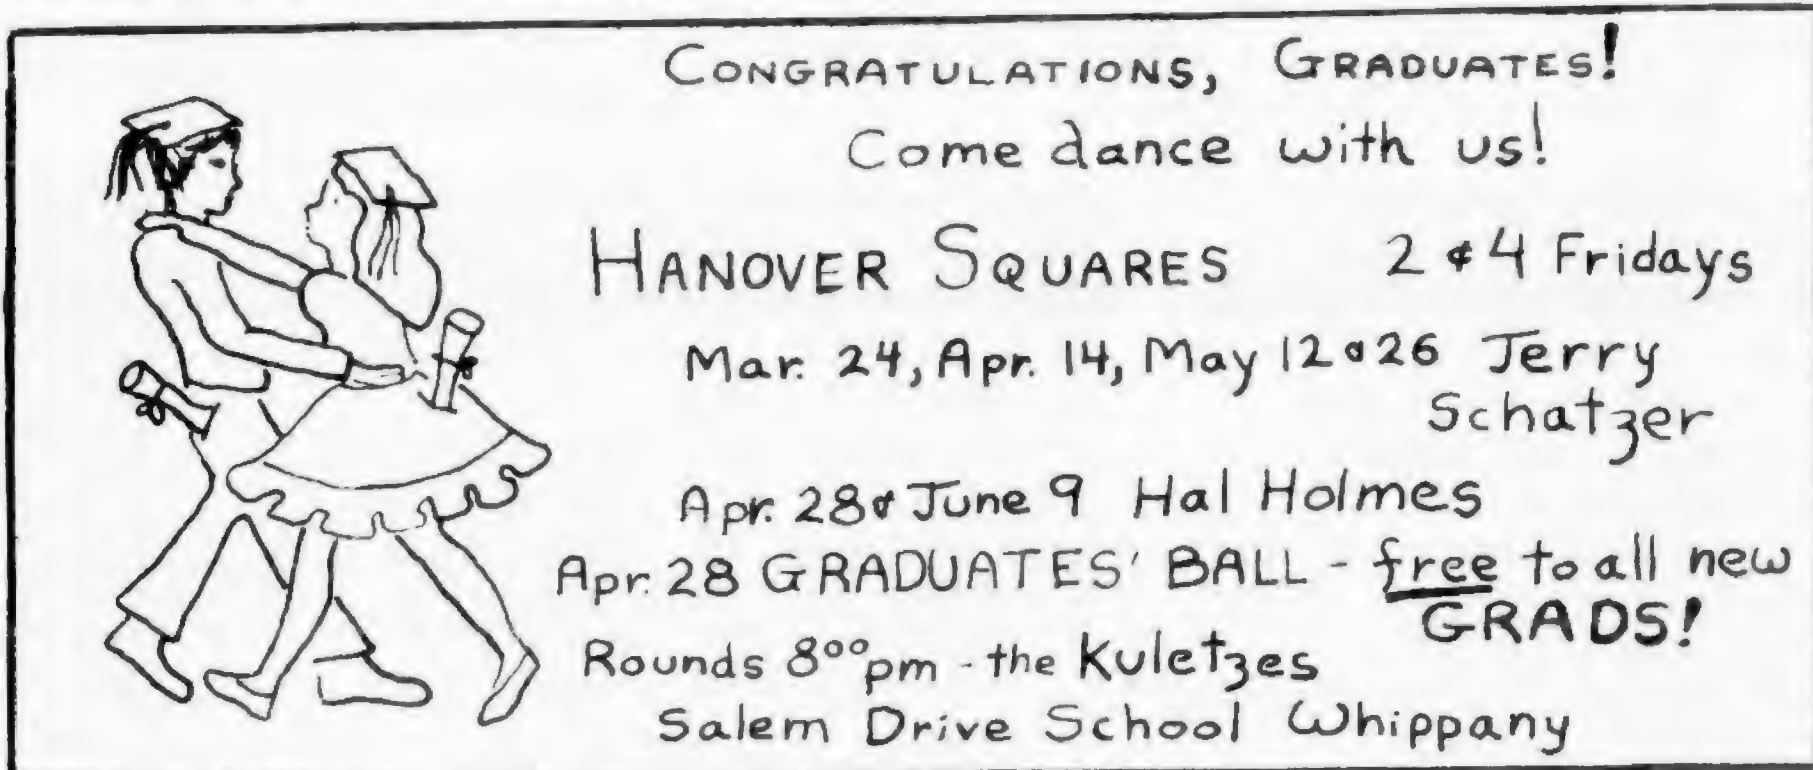 CONGRATULATIONS, GRADUATES!
Come dance with us!
HANOVER SQUARES 2 & 4 Fridays
Mar. 24, Apr. 14, May 12 & 26 Jerry
Schatzer
Apr. 28 & June 9 Hal Holmes
Apr. 28 GRADUATES' BALL - free to all new
GRADS!
Rounds 8⁰⁰ pm - the Kuletzes
Salem Drive School Whippany